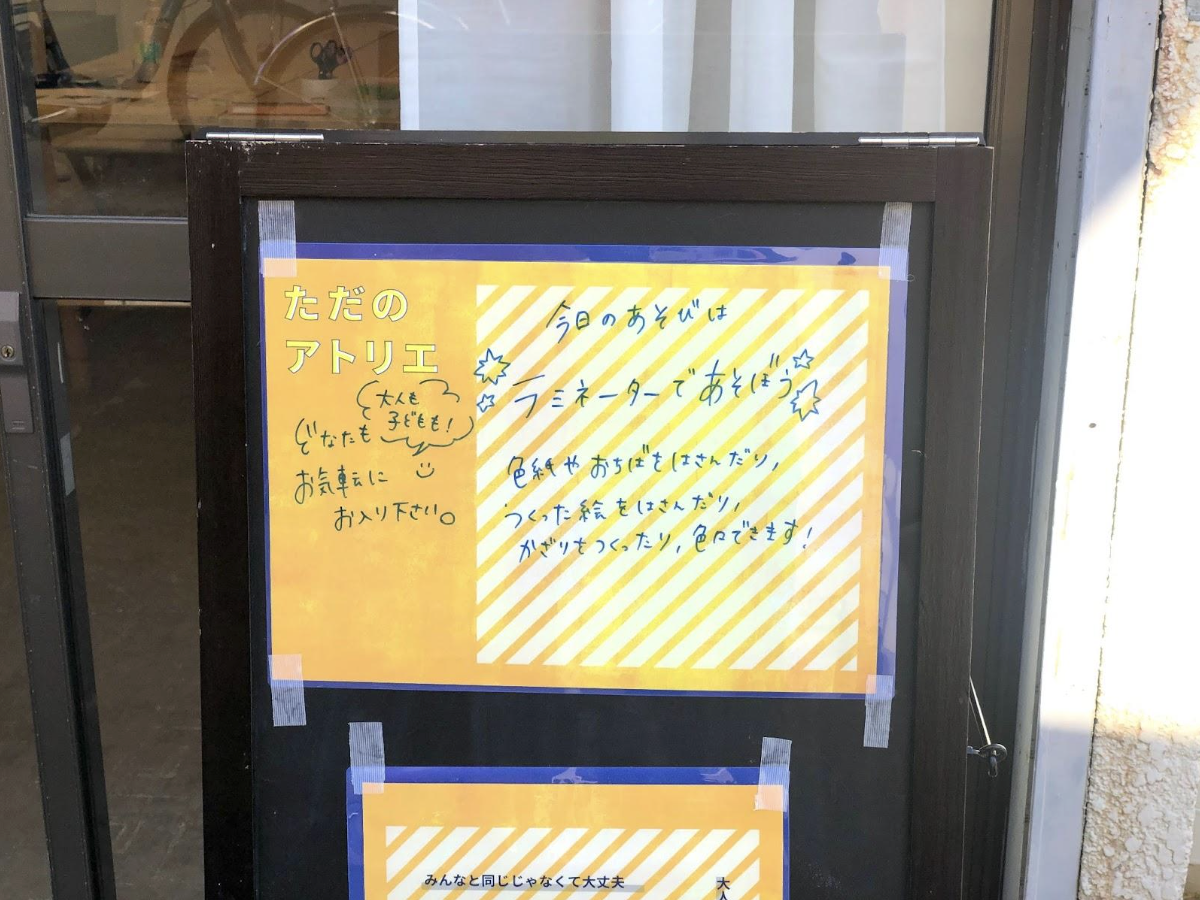 ただの
アトリエ
大人も
子どもも!
どなたも
お気転に
お入り下さい。
今日のあそびは
ラミネーターであそぼう
色紙やおちばをはさんだり,
つくった絵をはさんだり,
かざりをつくったり,色々できます!
みんなと同じじゃなくて大丈夫
大人